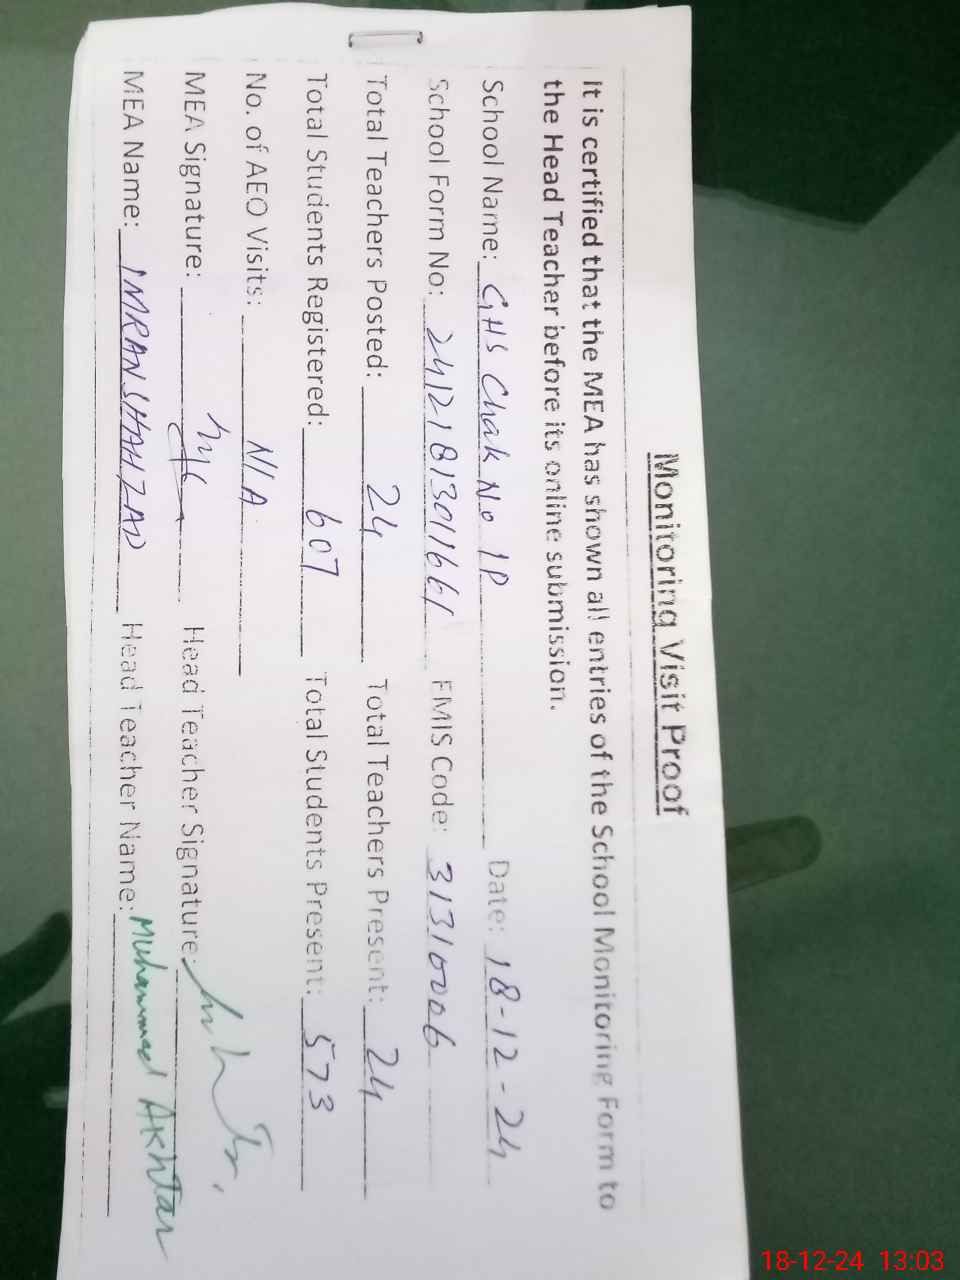 Monitoring Visit Proof
It is certified that the MEA has shown all entries of the School Monitoring Form to
the Head Teacher before its online submission.
School Name: GHS Chak No 1P Date: 18-12-24
School Form No: 24121813011661 EMIS Code: 31310006
Total Teachers Posted: 24 Total Teachers Present: 24
Total Students Registered: 607 Total Students Present: 573
No. of AEO Visits: N/A
MEA Signature: Head Teacher Signature:
MEA Name: IMRAN SHAHZAD Head Teacher Name: Muhammad Akhtar
18-12-24 13:03